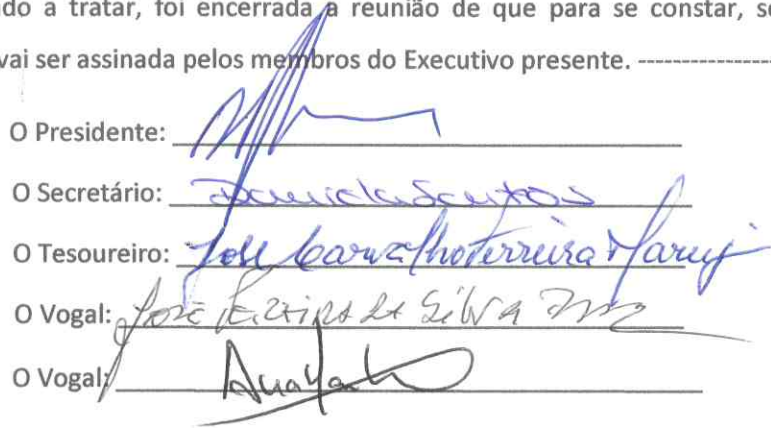 ndo a tratar, foi encerrada a reunião de que para se constar, se
vai ser assinada pelos membros do Executivo presente. ------------------
O Presidente:
O Secretário: Daniela Santos
O Tesoureiro: José Carvalho Ferreira
O Vogal: José Pereira da Silva
O Vogal: